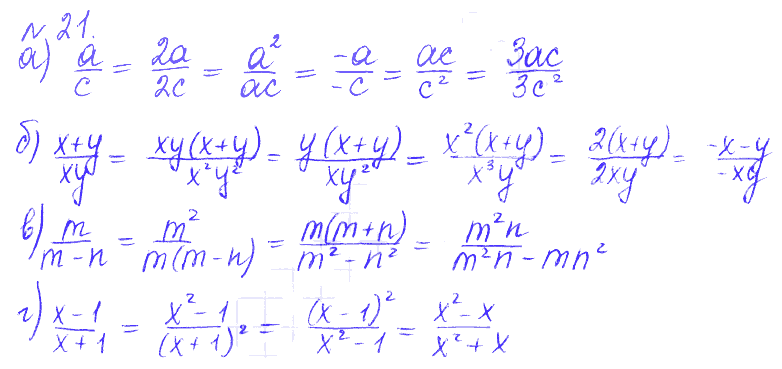 № 21.
а) a/c = 2a/2c = a²/ac = -a/-c = ac/c² = 3ac/3c²
б) x+y/xy = xy(x+y)/x²y² = y(x+y)/xy² = x²(x+y)/x³y = 2(x+y)/2xy = -x-y/-xy
в) m/m-n = m²/m(m-n) = m(m+n)/m²-n² = m²n/m²n-mn²
г) x-1/x+1 = x²-1/(x+1)² = (x-1)²/x²-1 = x²-x/x²+x